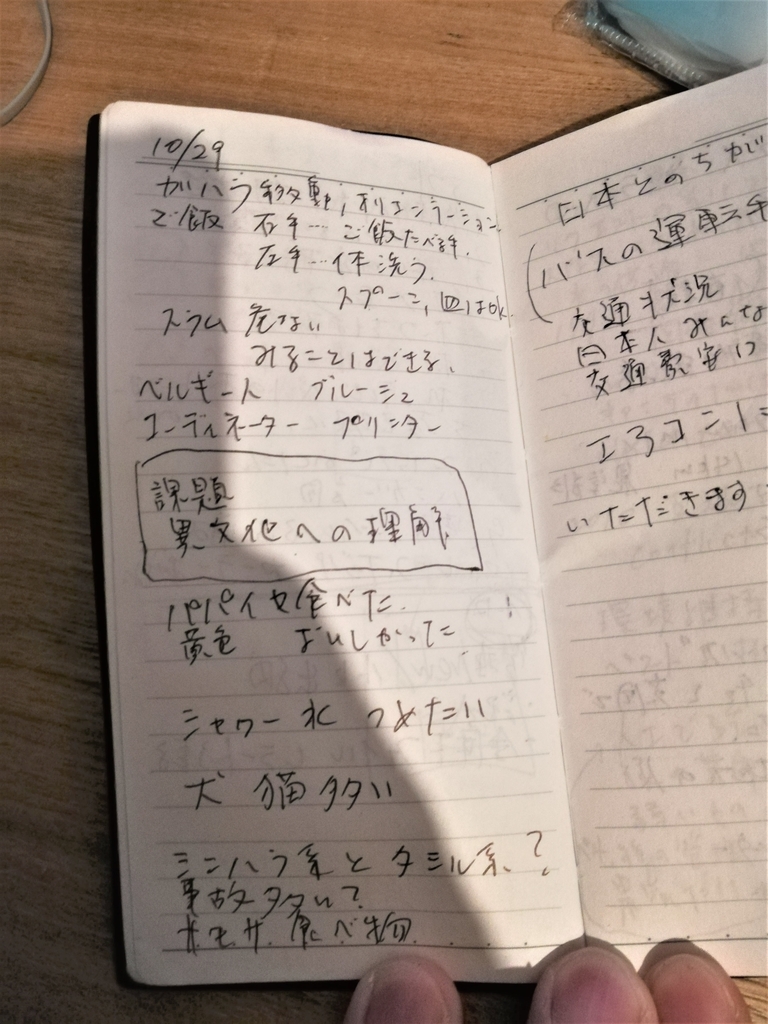 10/29
ガハラ移動,オリエンテーション
ご飯 右手…ご飯たべる手.
左手…体洗う.
スプーン,皿はok.
スラム 危ない
みることはできる.
ベルギート ブルーシュ
コーディネーター プリンター
課題
異文化への理解
パパイヤ食べた.
黄色 おいしかった !
シャワー水 つめたい
犬 猫 多い
シンハラ系とタミル系?
事故多い?
サモサ 食べ物
日本とのちが
(バスの運転手
交通状況
日本人みんな
交通
エアコン
いただきます